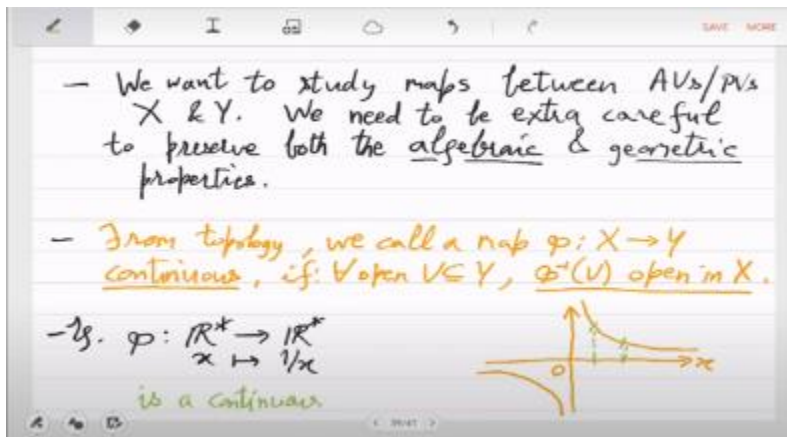 SAVE MORE
— We want to study maps between AVs/PVs
X & Y. We need to be extra careful
to preserve both the algebraic & geometric
properties.
— From topology, we call a map φ: X → Y
continuous, if: ∀ open V ⊆ Y, φ⁻¹(V) open in X.
— Eg. φ: ℝ* → ℝ*
x ↦ 1/x
0 x
is a continuous